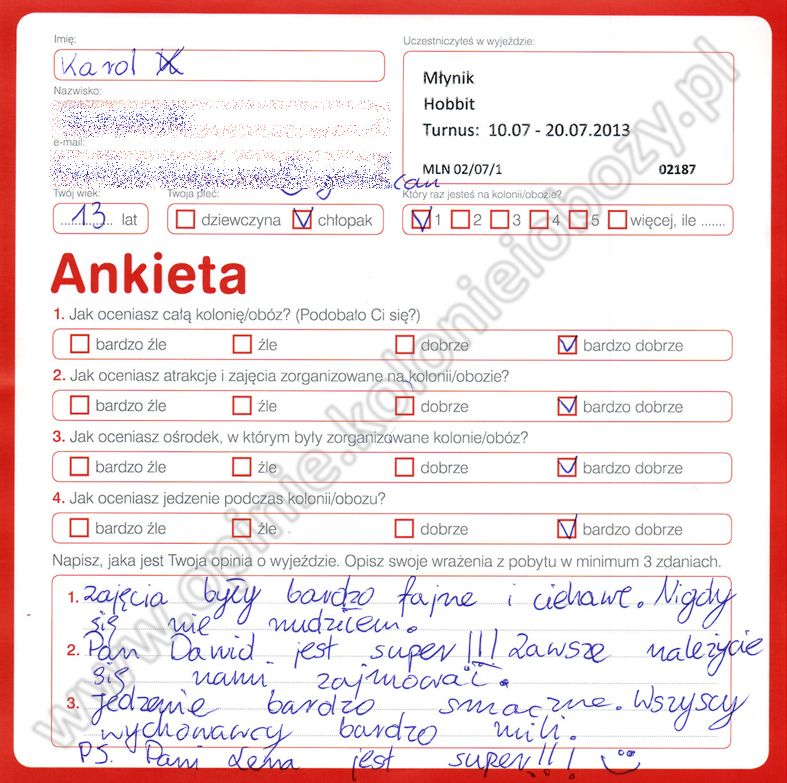 Imię:
Karol
Uczestniczyłeś w wyjeździe:
Młynik
Hobbit
Turnus: 10.07 - 20.07.2013
MLN 02/07/1 02187
Nazwisko:
e-mail:
com
Twój wiek:
13 lat
Twoja płeć:
dziewczyna chłopak
Który raz jesteś na kolonii/obozie?
1 2 3 4 5 więcej, ile .......
Ankieta
1. Jak oceniasz całą kolonię/obóz? (Podobało Ci się?)
bardzo źle źle dobrze bardzo dobrze
2. Jak oceniasz atrakcje i zajęcia zorganizowane na kolonii/obozie?
bardzo źle źle dobrze bardzo dobrze
3. Jak oceniasz ośrodek, w którym były zorganizowane kolonie/obóz?
bardzo źle źle dobrze bardzo dobrze
4. Jak oceniasz jedzenie podczas kolonii/obozu?
bardzo źle źle dobrze bardzo dobrze
Napisz, jaka jest Twoja opinia o wyjeździe. Opisz swoje wrażenia z pobytu w minimum 3 zdaniach.
1. zajęcia były bardzo fajne i ciekawe. Nigdy
się nie nudziłem.
2. Pan Dawid jest super!!! Zawsze należycie
się nami zajmował.
3. Jedzenie bardzo smaczne. Wszyscy
wychowawcy bardzo mili.
PS. Pani Lena jest super!!!
www.opinie.kolonieiobozy.pl